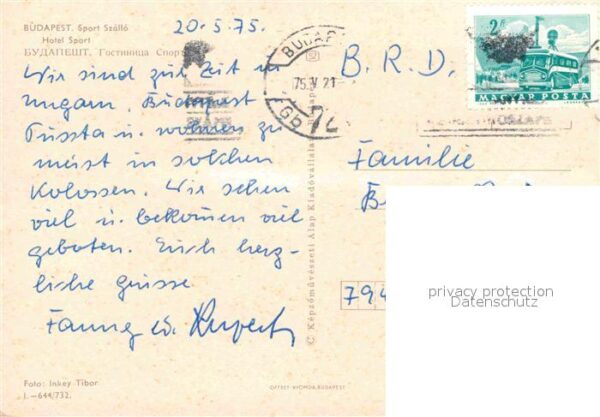 BUDAPEST. Sport Szálló
Hotel Sport
БУДАПЕШТ. Гостиница Спорт
20.5.75.
Wir sind zur Zeit in
Ungarn. Budapest
Puszta u. wohnen zu
meist in solchen
Kolossen. Wir sehen
viel u. bekommen viel
geboten. Euch herz-
liche Grüsse.
Fanny u. Rupert
Foto: Inkey Tibor
I.—644/732.
© Képzőművészeti Alap Kiadóvállalata, Budapest
OFFSET-NYOMDA, BUDAPEST
BUDAPEST
75. V 21
72
2 Ft
MAGYAR POSTA
B. R. D.
Familie
794
privacy protection
Datenschutz